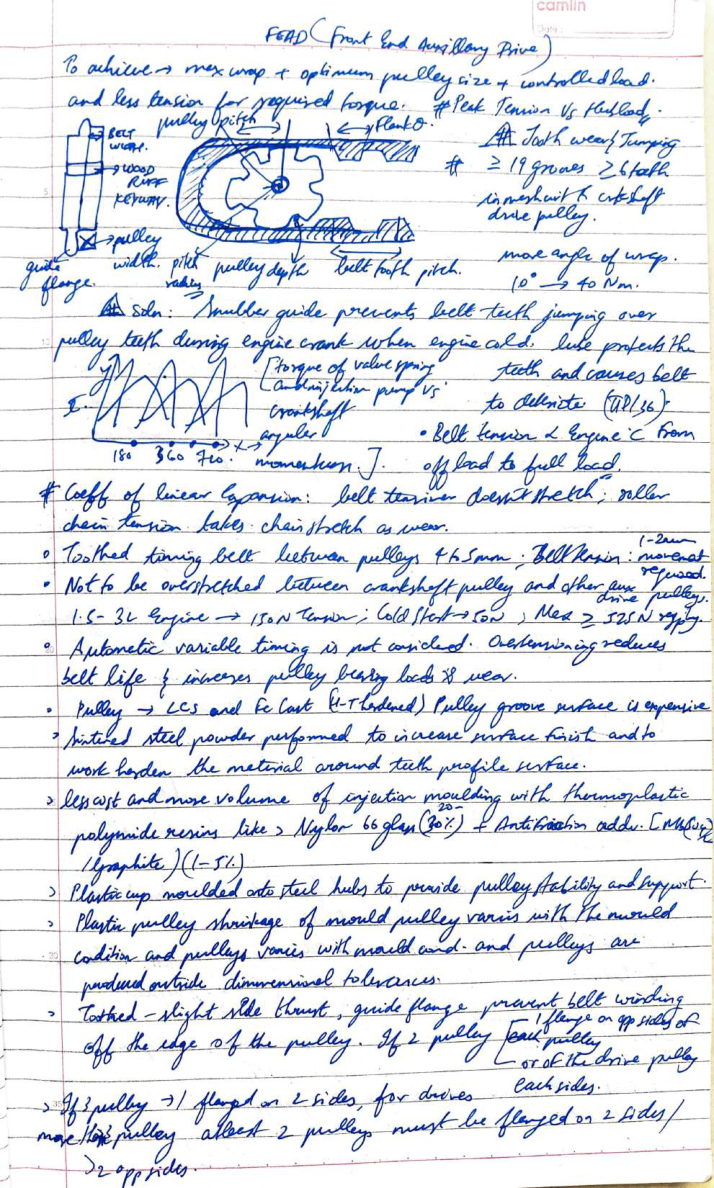 camlin
Date:
FEAD (Front End Auxillary Drive)
To achieve → max wrap + optimum pulley size + controlled load.
and less tension for required torque. # Peak Tension Vs
pulley pitch
Flank θ.
BELT
Tooth wear & Jumping
→ WOOD
RUFF
KEYWAY.
# ≥ 19 grooves ≥ 6 teeth
in mesh with crkshaft
drive pulley.
→ pulley
width.
guide
flange.
pitch
radius
pulley depth
belt tooth pitch.
more angle of wrap.
10° → 40 Nm.
Soln: Snubber guide prevents belt teeth jumping over
pulley teeth during engine crank when engine cold. protects the
teeth and causes belt
[torque of valve spring
and injection pump vs
crankshaft
angular
momentum].
to
180 360 720
• Belt tension α Engine °C from
off load to full load.
# Coeff of linear Expansion: belt tensioner doesn't stretch; roller
chain tension takes chain stretch as wear.
• Toothed timing belt between pulleys 4 to 5mm. Belt Tension: 1-2mm movement
required.
• Not to be overstretched between crankshaft pulley and other aux
drive pulleys.
1.5 - 3L Engine → 150N Tension; Cold Start → 50N; Max ≥ 525N
• Automatic variable timing is not considered. Overtensioning reduces
belt life & increases pulley bearing loads & wear.
• Pulley → LCS and Fe Cast (I-T hardened) Pulley groove surface is expensive
> Sintered steel powder performed to increase surface finish and to
work harden the material around teeth profile surface.
> less cost and more volume of injection moulding with thermoplastic
polymide resins like > Nylon 66 glass (20-30%) + Antifriction addv. [
/graphite) (1-5%)
> Plastic cup moulded onto steel hubs to provide pulley stability and support.
> Plastic pulley shrinkage of mould pulley varies with the mould
condition and pulleys varies with mould cond. and pulleys are
produced outside dimmensional tolerances.
> Toothed - slight side thrust, guide flange prevent belt winding
off the edge of the pulley. If 2 pulley [1 flange on opp sides of
each pulley
or of the drive pulley
each sides.
> If 3 pulley → 1 flanged on 2 sides, for drives
more than 3 pulley atleast 2 pulleys must be flanged on 2 sides/
> 2 opp sides.